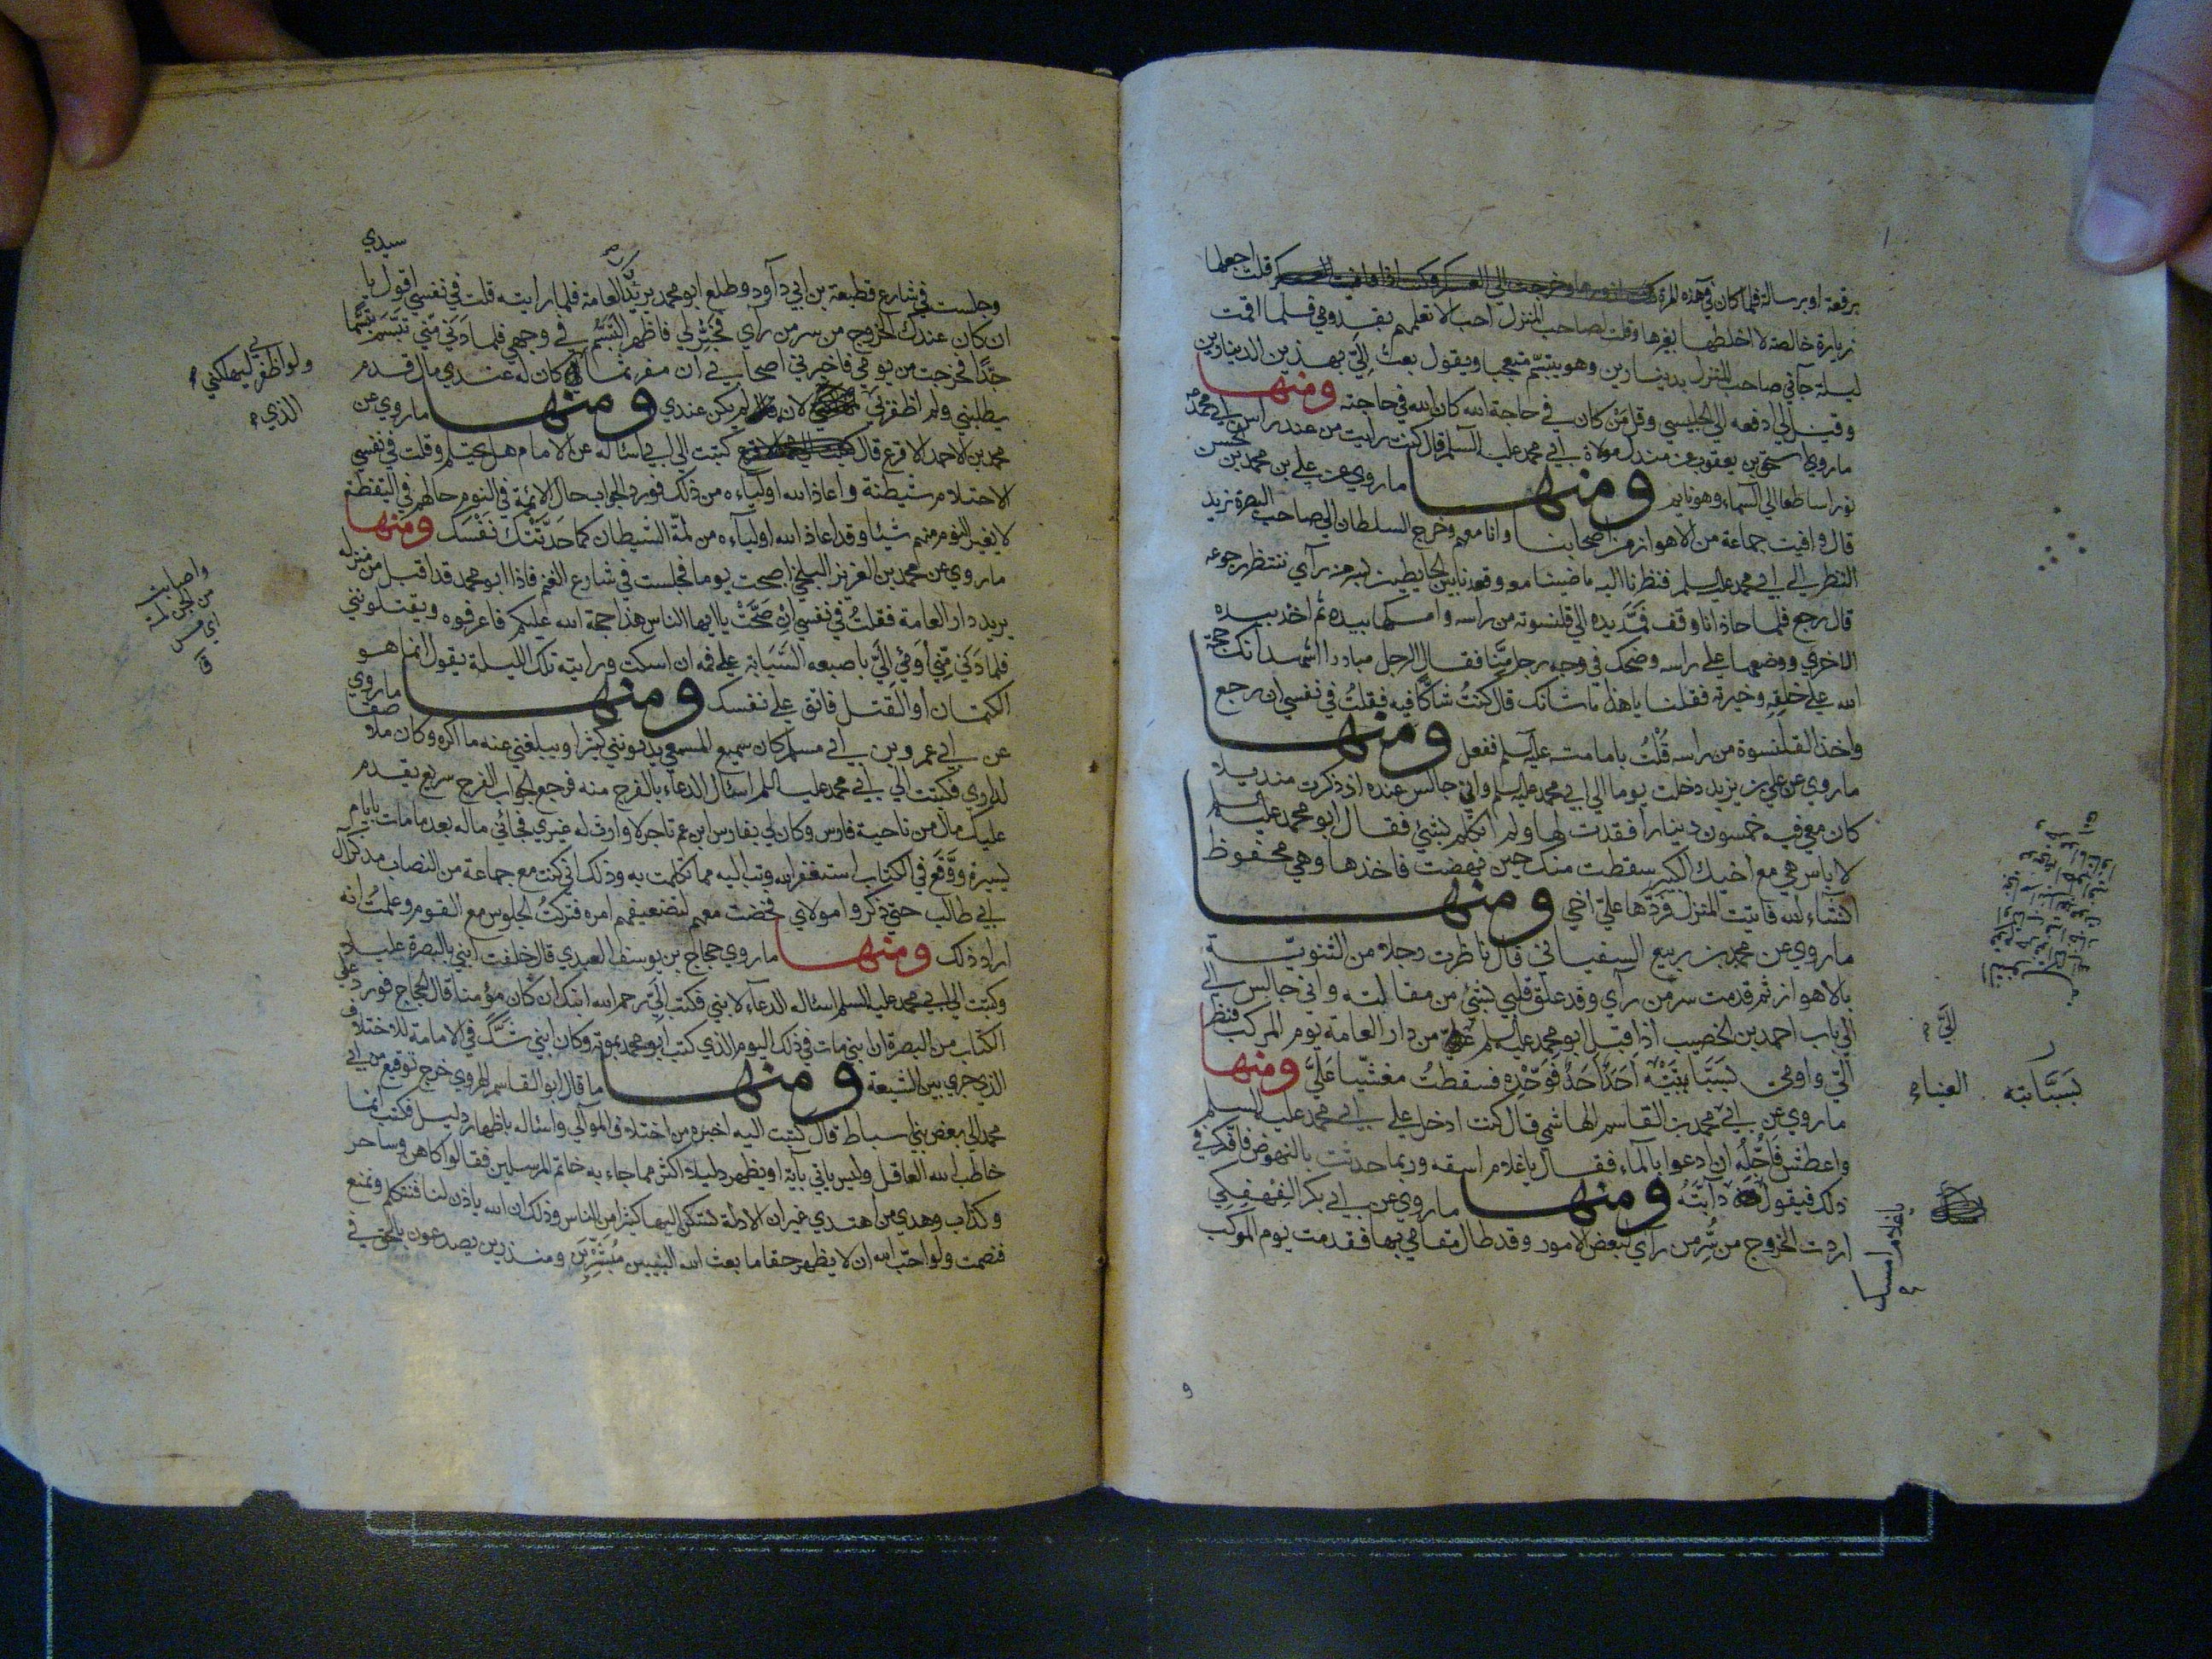 برقعة او برسالة فلما كان في هذه المرة قلت اجعلها
زيارة خالصة لا اخلطها بغيرها وقلت لصاحب المنزل احب الا تعلمهم بقدومي فلما اقمت
ليلة جآني صاحب المنزل بدينارين وهو يتبسّم متعجبا ويقول بعث اليّ بهذين الدينارين
وقيل لي ادفعه الي الحليسي وقل من كان في حاجة الله كان الله في حاجته ومنها
ماروي اسحق بن يعقوب عن مولاة ابي محمد عليه السلم قال كنت رايت من عند راس ابي محمد
نورا ساطعا الي السماء وهو نايم ومنها ماروي عن علي بن محمد بن الحسن
قال وافيت جماعة من الاهواز من اصحابنا وانا معهم وخرج السلطان الي صاحب البصرة نريد
النظر الي ابي محمد عليه السلم فنظرنا اليه ماضيا معه وقعدنا بين الحايطين بسر من رآي ننتظر رجوعه
قال رجع فلما حاذانا وقف فمدّ يده الي قلنسوته من راسه وامسكها بيده ثم اخذ بيده
الاخري ووضعها علي راسه وضحك في وجه رجل منّا فقال الرجل مبادرا اشهد انك حجة
الله علي خلقه وخيرته فقلنا يا هذا ما شانك قال كنتُ شاكّا فيه فقلتُ في نفسي ان رجع
واخذ القلنسوة من راسه قُلْتُ بامامته عليه السلم ففعل ومنها
ماروي عن علي بن يزيد دخلت يوما الي ابي محمد عليه السلم واني جالس عنده اذ ذكرت منديلا
كان معي فيه خمسون دينارا فقدت لها ولم اتكلم بشئ فقال ابو محمد عليه السلم
لاباس هي مع اخيك الكبير سقطت منك حين نهضت فاخذها وهي محفوظة
انشاء الله فاتيت المنزل فردّها عليّ اخي ومنها
ماروي عن محمد بن ربيع السفياني قال ناظرت رجلا من الثنويّة
بالاهواز ثم قدمت سر من رآي وقد علق قلبي بشئ من مقالته واني جالس الي
الي باب احمد بن الخصيب اذ اقبل ابو محمد عليه السلم من دار العامة يوم المركب فنظر
اليّ واومي اَحَدًا اَحَدٌ فَوَحِّدْه فسقطتُ مغشيّا عَليَّ ومنها
ماروي عن ابي محمد بن القاسم الهاشمي قال كنت ادخل علي ابي محمد عليه السلم
واعطش فَاُجِلُّهُ ان ادعوا بالماء فقال يا غلام اسقه وربما حدثت بالنهوض فافكر في
ذلك فيقول دآبّتَهُ ومنها ماروي عن ابي بكر الفهفكي
اردت الخروج من سُرّ من رآي لبعض الامور وقد طال مقامي بها فقدمت يوم الموكب
اليَّ
بسَبَّابته
يا غلام
وجلست في شارع قطيعة بن ابي دآود وطلع ابو محمد يريد العامة فلما رايته قلت في نفسي اقول يا سيدي
ان كان عندك الخروج من سر من رآي فاظهر التبسّم في وجهي فلما دَنَي منّي تبَسَّمَ تبسُّما
جدًّا فخرجت من يومي فاخبرني اصحابي ان كان له عندي مال قدم
يطلبني ولم اظفر بي لان لم يكن عندي ومنها ماروي عن
محمد بن الاحمد الاقرع قال كتبت الي ابي اسئاله عن الامام هل يحتلم وقلت في نفسي
الاحتلام شيطنة واعاذ الله اولياءه من ذلك فورد الجواب حال الائمة في النوم حالهم في اليقظة
لا يغير النوم منهم شيئا وقد اعاذ الله اولياءه من لمّة الشيطان كما حَدَّثَتْك نَفْسَك ومنها
ماروي عن محمد بن العزيز البلخي اصبحت يوما فجلست في شارع الغنم فاذا ابو محمد قد اقبل من منزله
يريد دار العامة فقلتُ في نفسي اِن صَحْتُ يا ايها الناس هذا حجة الله عليكم فاعرفوه ويقتلونني
فلما دَنَي مِنّي اَومَي اِليَّ باصبعه السَّبَّابَة علي فمه ان اسكت ورايته تلك الليلة يقول انما هو
الكتمان او القتل فاتق علي نفسك ومنها ماروي
عن ابي عمرو بن ابي مسلم كان سميع المسمعي يوذيني كثيرا ويبلغني عنه ما اكره وكان ملاصقا
لداري فكتبت الي ابي محمد عليه السلم اسئال الدعاء بالفرج منه فرجع الجواب الفرج سريع يقدم
عليك مال من ناحية فارس وكان لي بفارس ابن عم تاجر لا وارث له غيري فجائني ماله بعد ما مات بايام
يسيرة ووَقَّعَ في الكتاب استغفر الله وتب اليه مما تكلمت به وذلك اني كنت مع جماعة من النصاب فذكر آل
ابي طالب حتي ذكروا مولاي فخضت معهم لتضعيفهم امره فتركتُ الجلوس مع القوم وعلمتُ انه
اراد ذلك ومنها ماروي حجاج بن يوسف العبدي قال خلفت ابني بالبصرة عليلا
وكتبت الي ابي محمد عليه السلم اسئاله الدعآء لابني فكتب اليّ رحم الله ابنك ان كان مؤمنا قال الحجاج فورد عليّ
الكتاب من البصرة ان ابني مات في ذلك اليوم الذي كتب ابو محمد بموته وكان ابني شَكَّ في الامامة للاختلاف
الذي جري بين الشيعة ومنها ما قال ابو القاسم الهروي خرج توقيع من ابي
محمد الي بعض بني اسباط قال كتبت اليه اخبره من اختلاف الموالي واسئاله باظهار دليل فكتب انما
خاطب الله العاقل وليس ياتي بآية او يظهر دليلا اكثر مما جاء به خاتم المرسلين فقالوا كاهن وساحر
وكذاب وهدي من اهتدي غير ان الادلة تسكن اليها كثيرا من الناس وذلك ان الله ياذن لنا فنتكلم ونمنع
فنصمت ولو احبّ الله ان لا يظهر حقا ما بعث الله النبيين مُبَشِّرِينَ ومنذرين يصدعون بالحق في
ولو اظفر بي ليهلكني
الذي